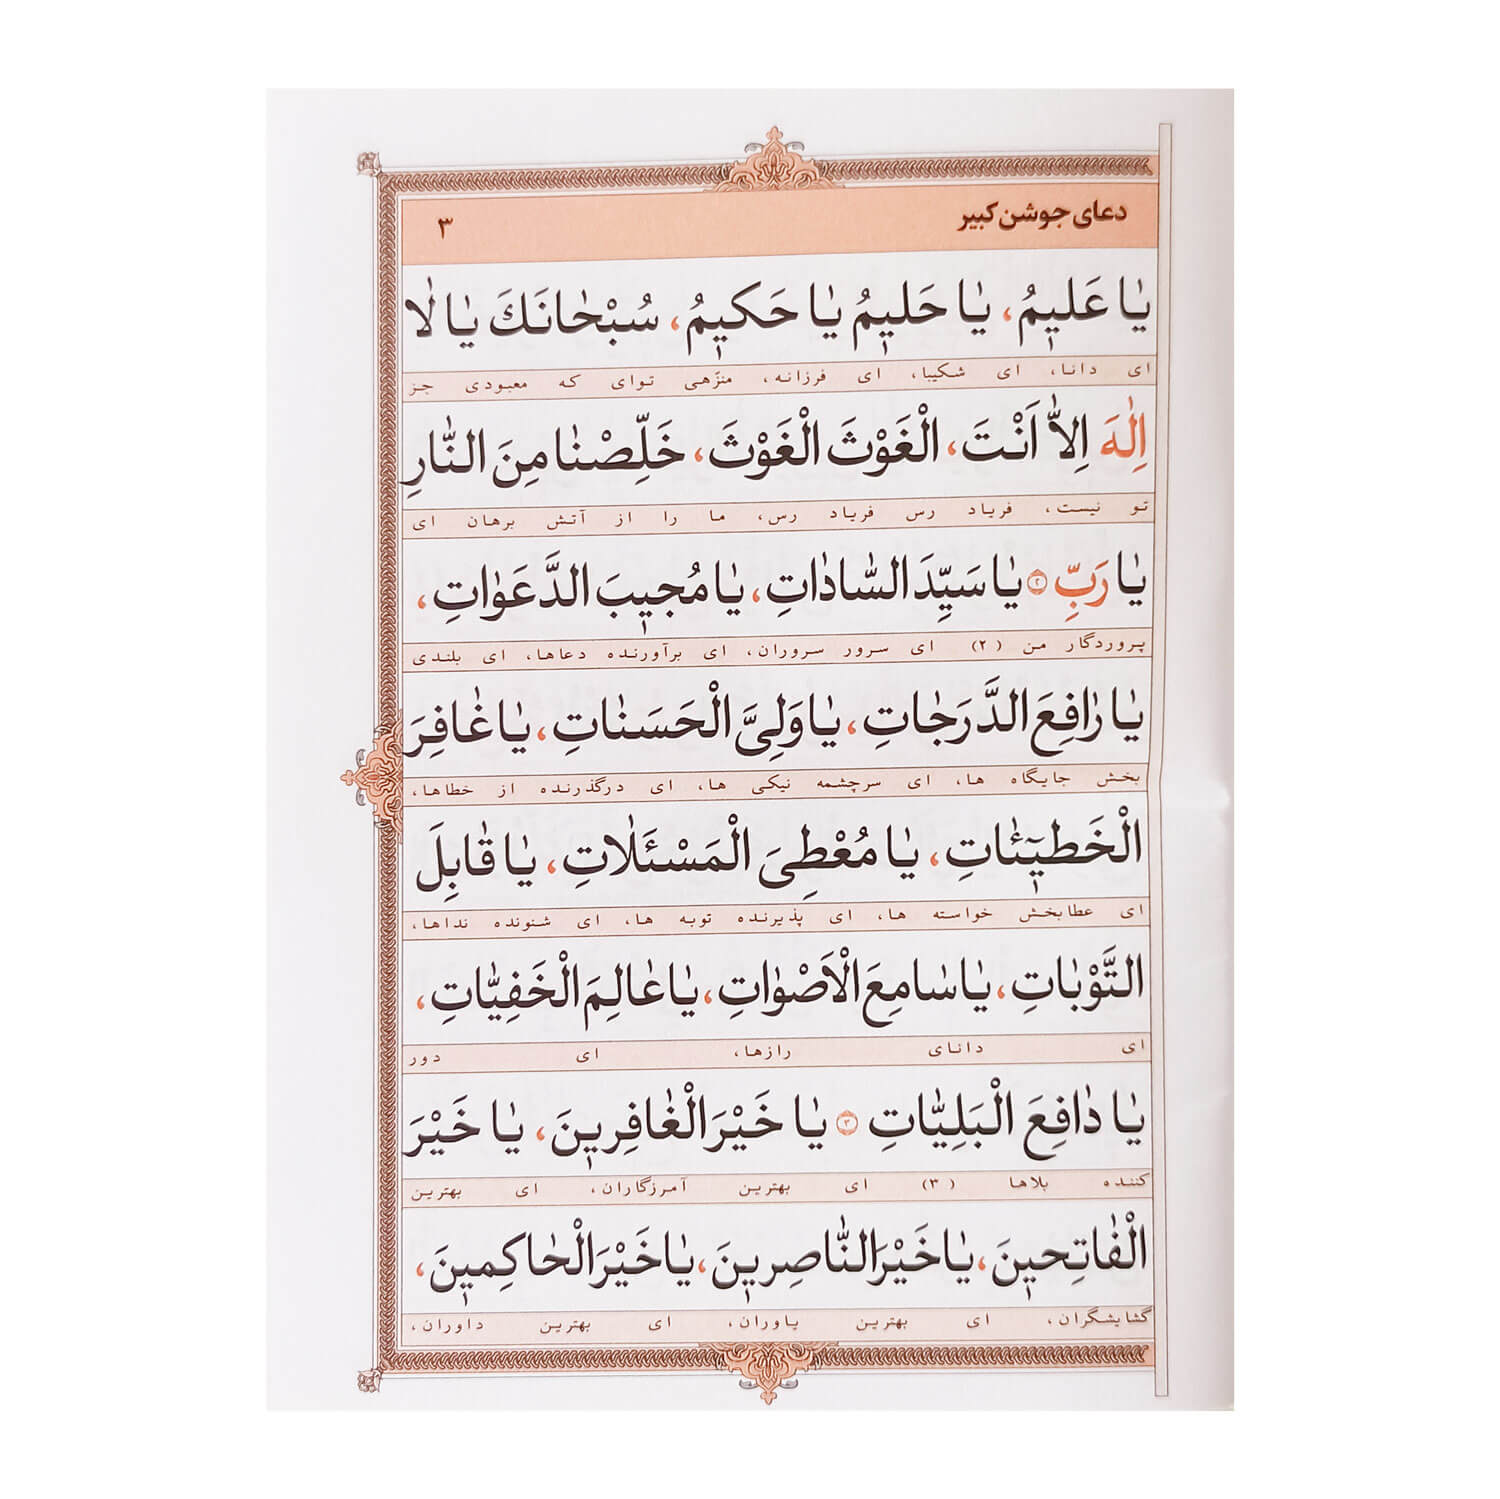 دعای جوشن کبیر ۳
یٰا عَلیمُ، یٰا حَلیمُ یٰا حَکیمُ، سُبْحٰانَکَ یٰا لٰا
ای دانا، ای شکیبا، ای فرزانه، منزّهی توای که معبودی جز
اِلٰهَ اِلاّٰ اَنْتَ، الْغَوْثَ الْغَوْثَ، خَلِّصْنٰا مِنَ النّٰارِ
تو نیست، فریاد رس فریاد رس، ما را از آتش برهان ای
یٰا رَبِّ ۲ یٰا سَیِّدَ السّٰادٰاتِ، یٰا مُجیبَ الدَّعَوٰاتِ،
پروردگار من (۲) ای سرور سروران، ای برآورنده دعاها، ای بلندی
یٰا رٰافِعَ الدَّرَجٰاتِ، یٰا وَلِیَّ الْحَسَنٰاتِ، یٰا غٰافِرَ
بخش جایگاه ها، ای سرچشمه نیکی ها، ای درگذرنده از خطاها،
الْخَطیٓئٰاتِ، یٰا مُعْطِیَ الْمَسْئَلاٰتِ، یٰا قٰابِلَ
ای عطابخش خواسته ها، ای پذیرنده توبه ها، ای شنونده نداها،
التَّوْبٰاتِ، یٰا سٰامِعَ الْاَصْوٰاتِ، یٰا عٰالِمَ الْخَفِیّٰاتِ،
ای دانای رازها، ای دور
یٰا دٰافِعَ الْبَلِیّٰاتِ ۳ یٰا خَیْرَ الْغٰافِرینَ، یٰا خَیْرَ
کننده بلاها (۳) ای بهترین آمرزگاران، ای بهترین
الْفٰاتِحینَ، یٰا خَیْرَ النّٰاصِرینَ، یٰا خَیْرَ الْحٰاکِمینَ،
گشایشگران، ای بهترین یاوران، ای بهترین داوران،